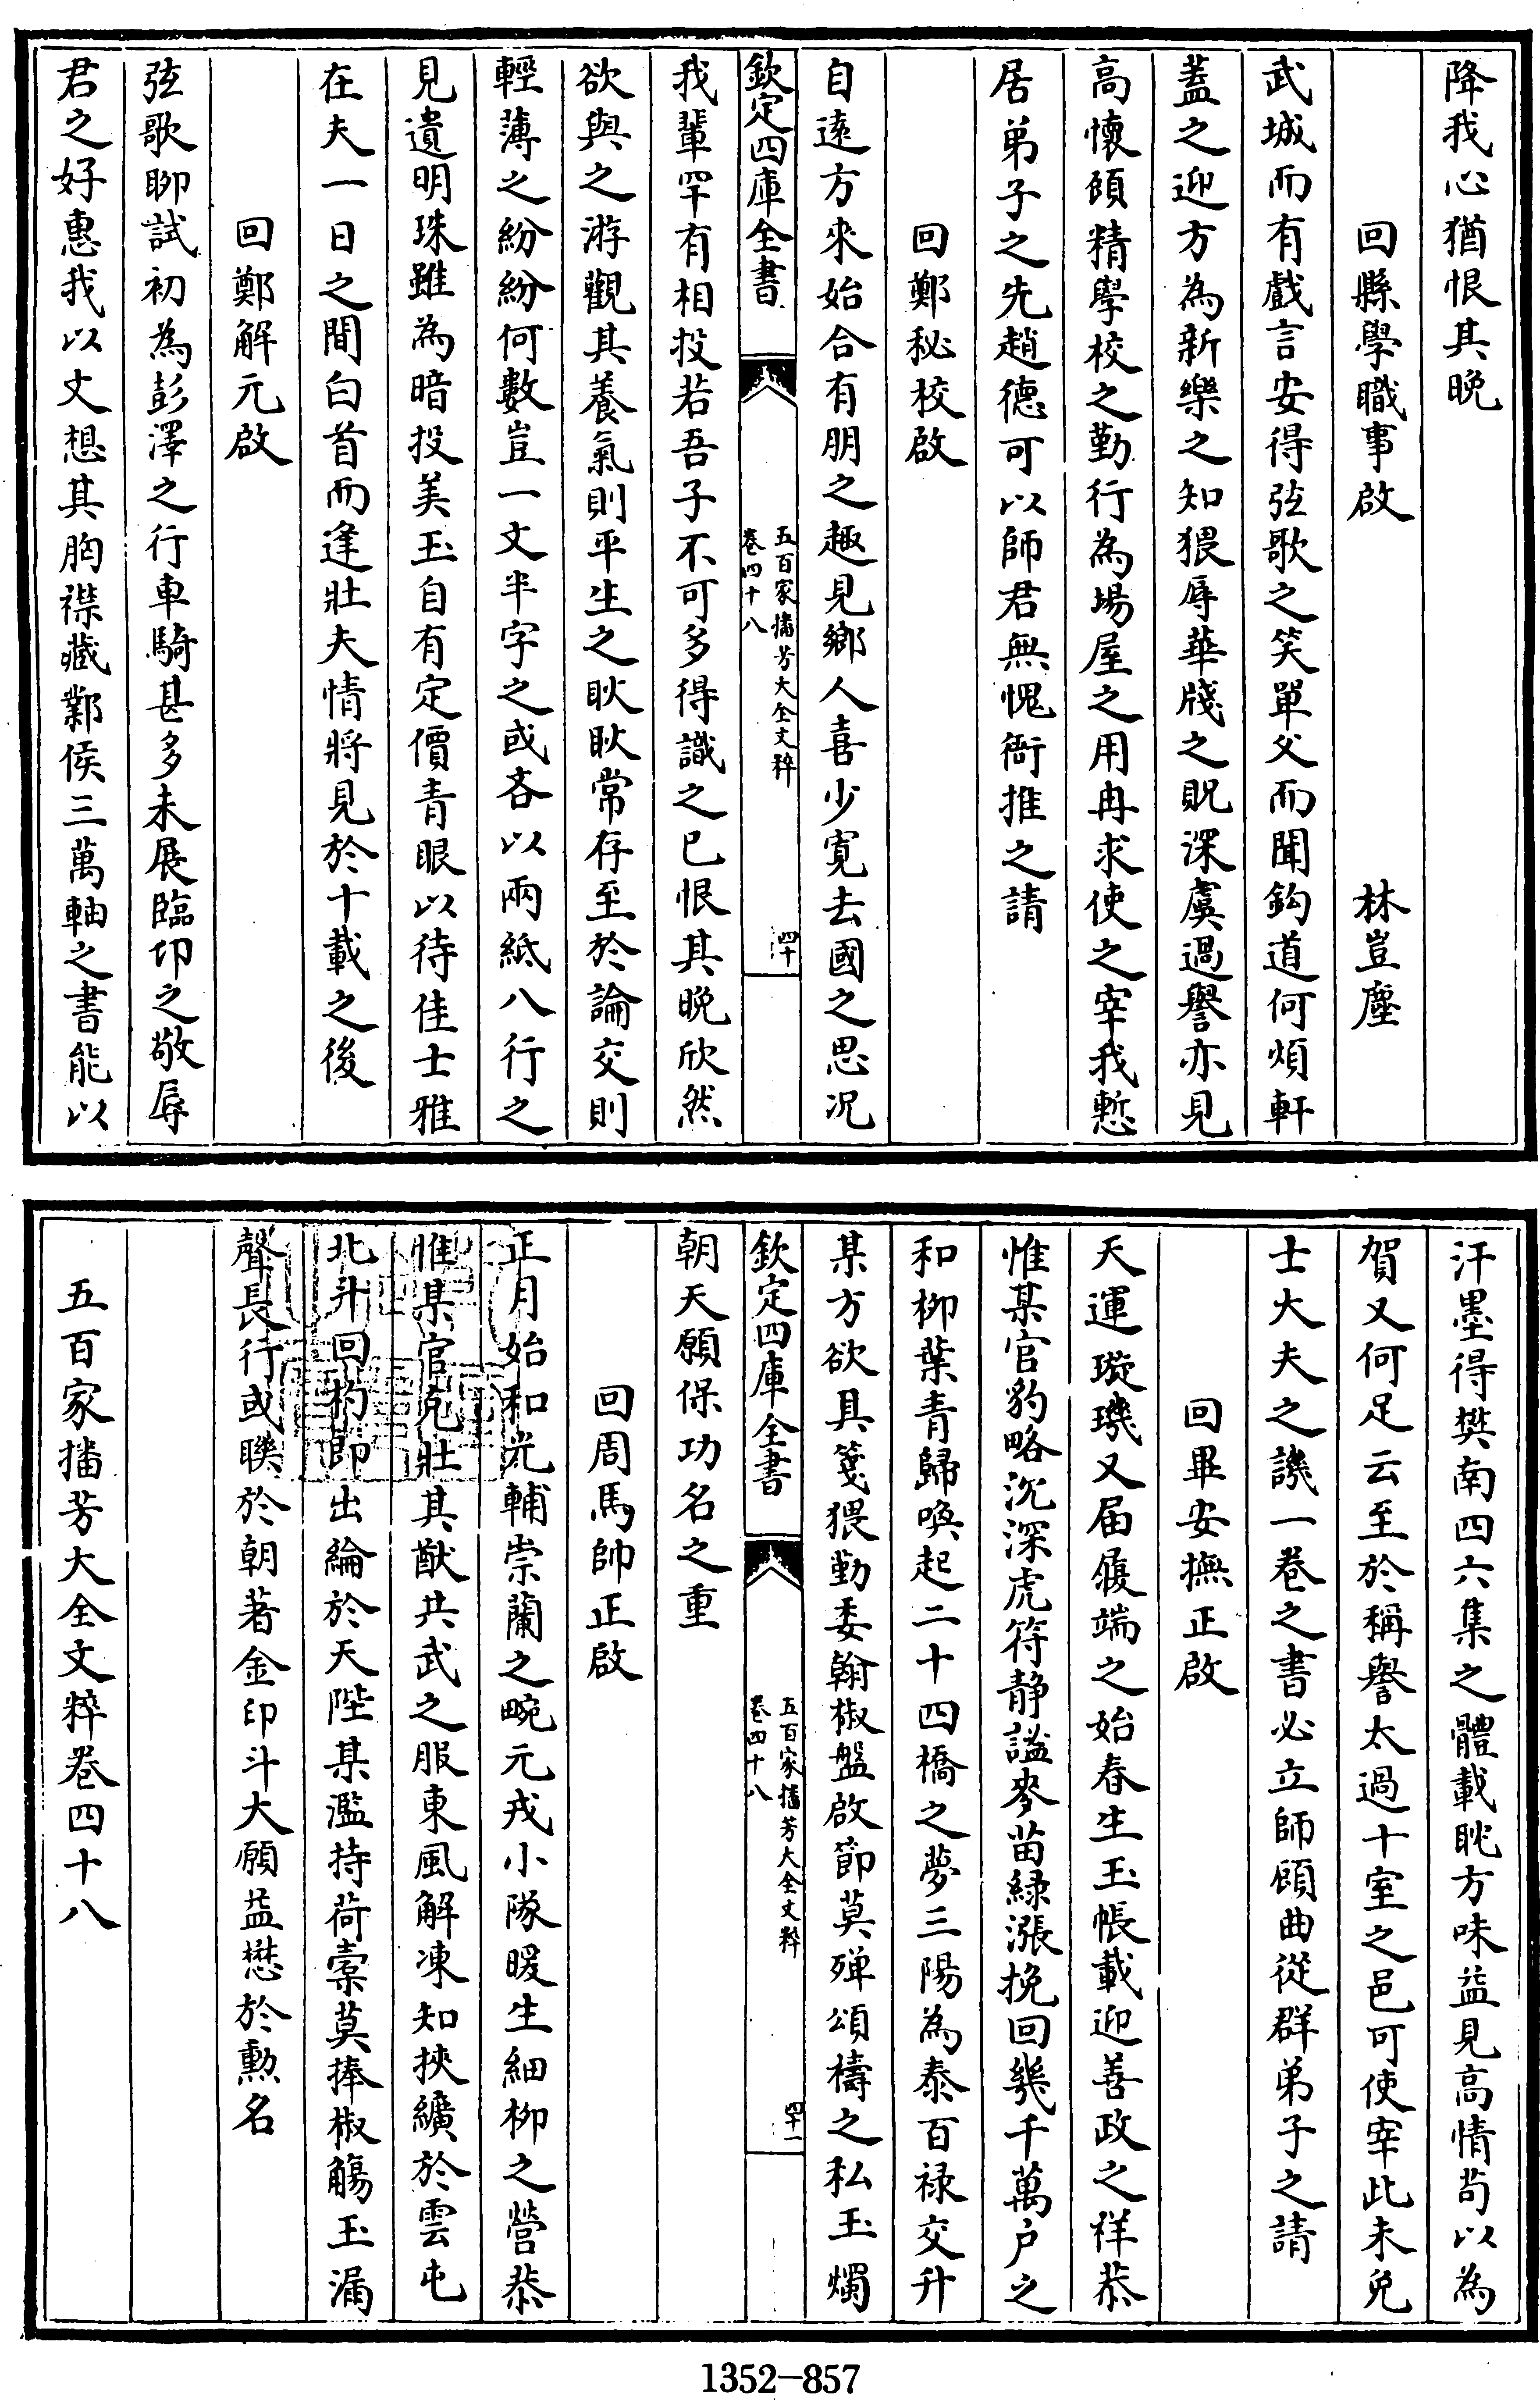 降我心猶恨其晚
回縣學職事啟　林豈塵
武城而有戲言安得弦歌之笑單父而聞鈎道何煩軒
蓋之迎方為新樂之知猥辱華牋之貺深虞過譽亦見
高懷頎精學校之勤行為場屋之用冉求使之宰我慙
居弟子之先趙德可以師君無愧衙推之請
回鄭秘校啟
自逺方來始合有朋之趣見鄉人喜少寛去國之思况
欽定四庫全書
五百家播芳大全文粹
卷四十八
四十
我輩罕有相投若吾子不可多得識之已恨其晚欣然
欲與之游觀其養氣則平生之耿耿常存至於論交則
輕薄之紛紛何數豈一文半字之或吝以兩紙八行之
見遺明珠雖為暗投美玉自有定價青眼以待佳士雅
在夫一日之間白首而逢壯夫情將見於十載之後
回鄭解元啟
弦歌聊試初為彭澤之行車騎甚多未展臨邛之敬辱
君之好惠我以文想其胸襟藏鄴侯三萬軸之書能以
汗墨得樊南四六集之體載眂方味益見高情茍以為
賀又何足云至於稱譽太過十室之邑可使宰此未免
士大夫之譏一卷之書必立師頎曲從群弟子之請
回畢安撫正啟
天運璇璣又届履端之始春生玉帳載迎善政之祥恭
惟某官豹略沉深虎符静謐麥苗緑漲挽回幾千萬户之
和柳葉青歸喚起二十四橋之夢三陽為泰百禄交升
某方欲具箋猥勤委翰椒盤啟節莫殫頌禱之私玉燭
欽定四庫全書
五百家播芳大全文粹
卷四十八
四十一
朝天願保功名之重
回周馬帥正啟
正月始和光輔崇蘭之畹元戎小隊暖生細柳之營恭
惟某官克壯其猷共武之服東風解凍知挾纊於雲屯
北斗回杓即出綸於天陛某濫持荷橐莫捧椒觴玉漏
聲長行或聯於朝著金印斗大願益懋於勲名
五百家播芳大全文粹卷四十八
1352-857